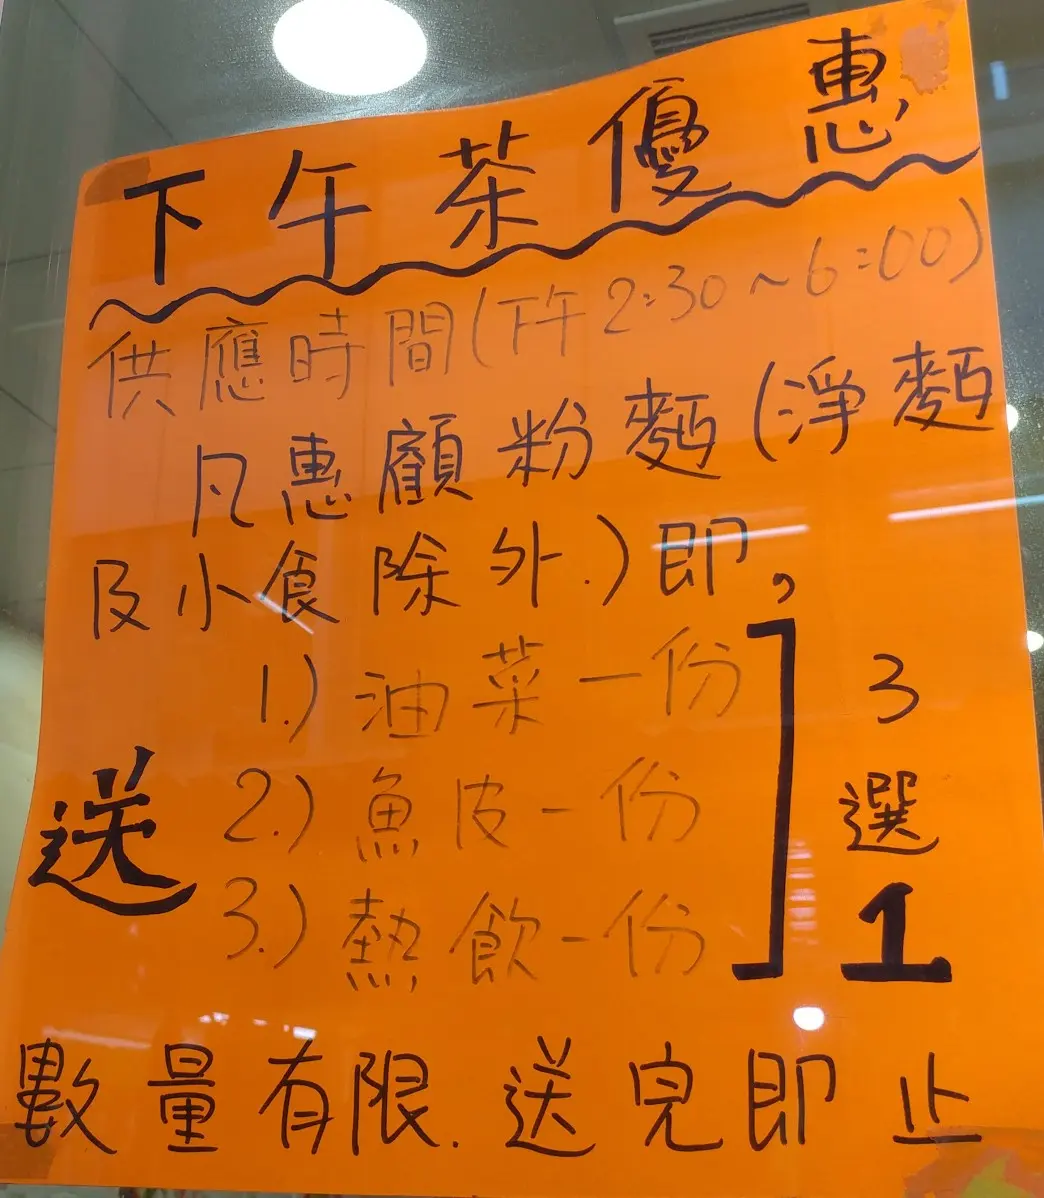 下午茶優惠
供應時間(下午2:30~6:00)
凡惠顧粉麵(淨麵
及小食除外.)即,
送
1.) 油菜一份
2.) 魚皮一份
3.) 熱飲一份
3
選
1
數量有限.送完即止